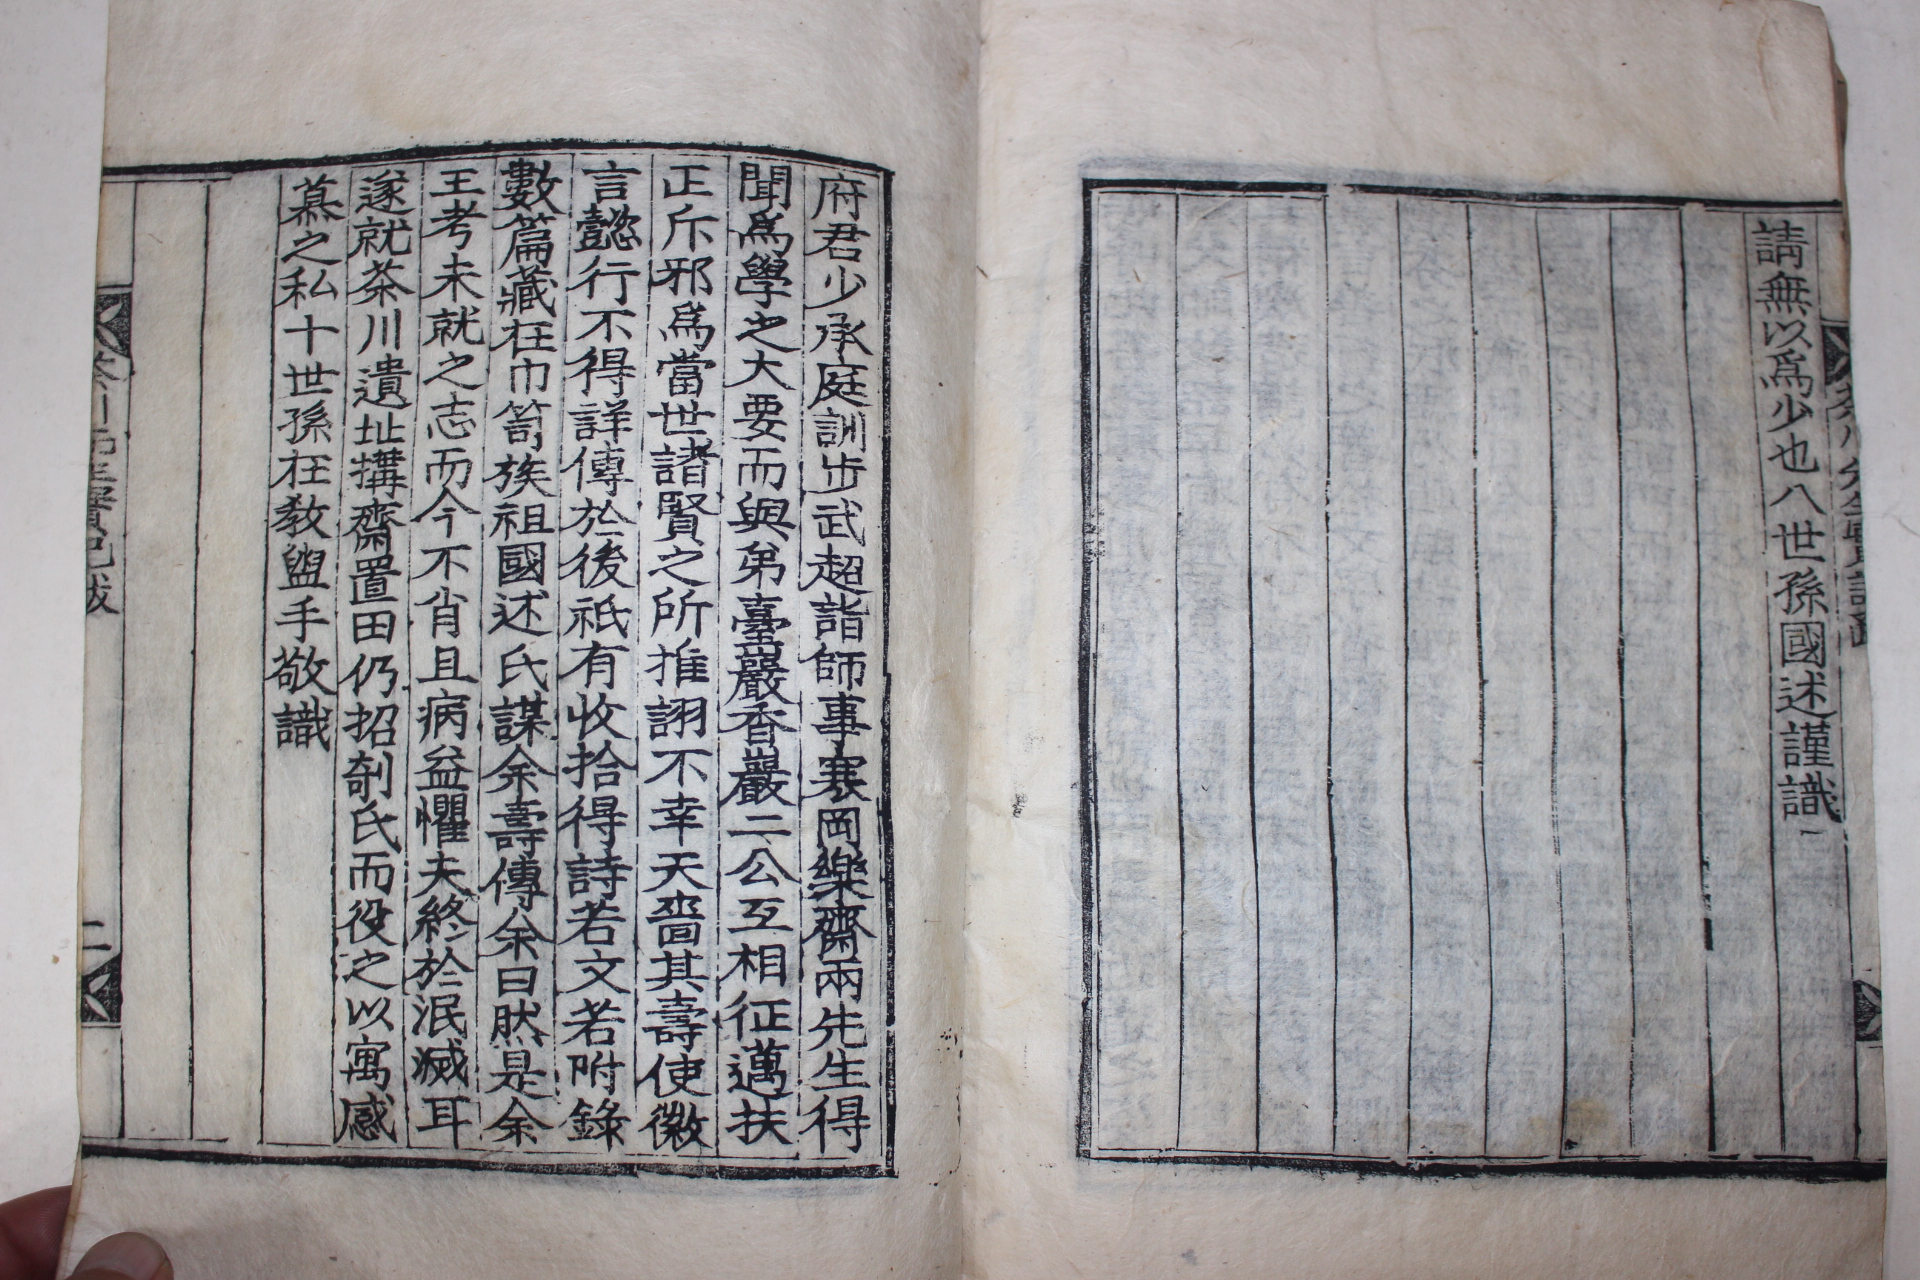 請無以爲少也八世孫國述謹識
府君少承庭訓步武超詣師事寒岡樂齋兩先生得
聞爲學之大要而與弟臺巖香巖二公互相征邁扶
正斥邪爲當世諸賢之所推詡不幸天嗇其壽使徽
言懿行不得詳傳於後祇有收拾得詩若文若附錄
數篇藏在巾笥族祖國述氏謀余壽傳余曰然是余
王考未就之志而今不肖且病益懼夫終於泯滅耳
遂就茶川遺址搆齋置田仍招剞氏而役之以寓感
慕之私十世孫在敎盥手敬識
二